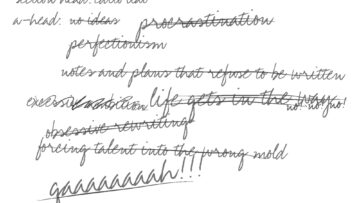 a-head: no ideas procrastination
perfectionism
notes and plans that refuse to be written
life gets in the way no! no! no!
obsessive rewriting
forcing talent into the wrong mold
gaaaaaaaah!!!